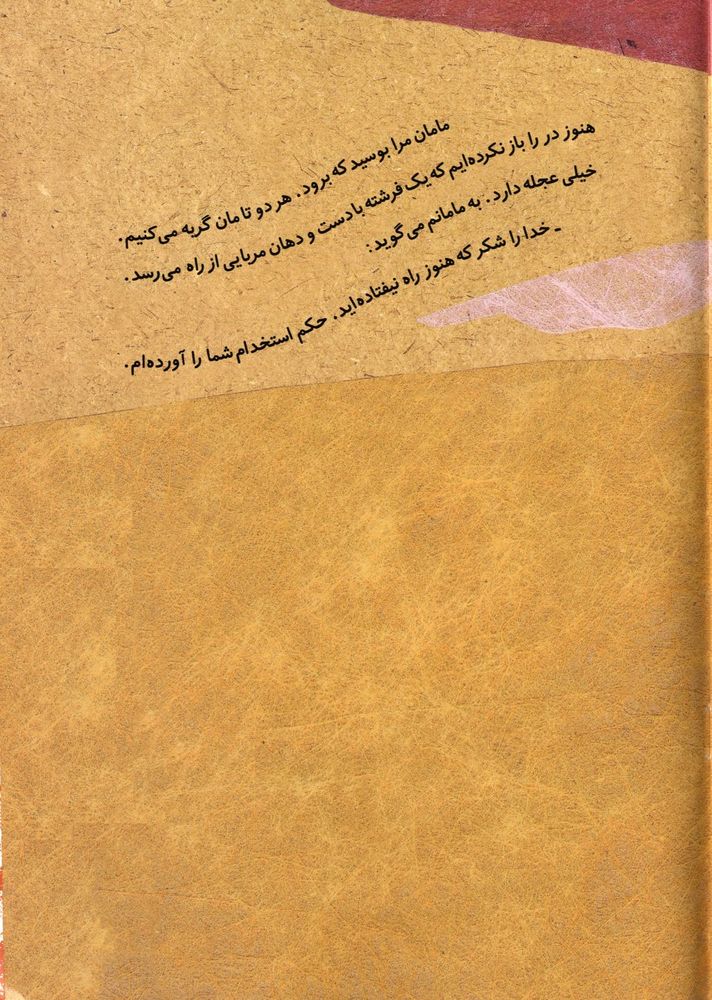 مامان مرا بوسید که برود. هر دو تا مان گریه می‌کنیم.
هنوز در را باز نکرده‌ایم که یک فرشته با دست و دهان مربایی از راه می‌رسد.
خیلی عجله دارد. به مامانم می‌گوید:
ـ خدا را شکر که هنوز راه نیفتاده‌اید. حکم استخدام شما را آورده‌ام.